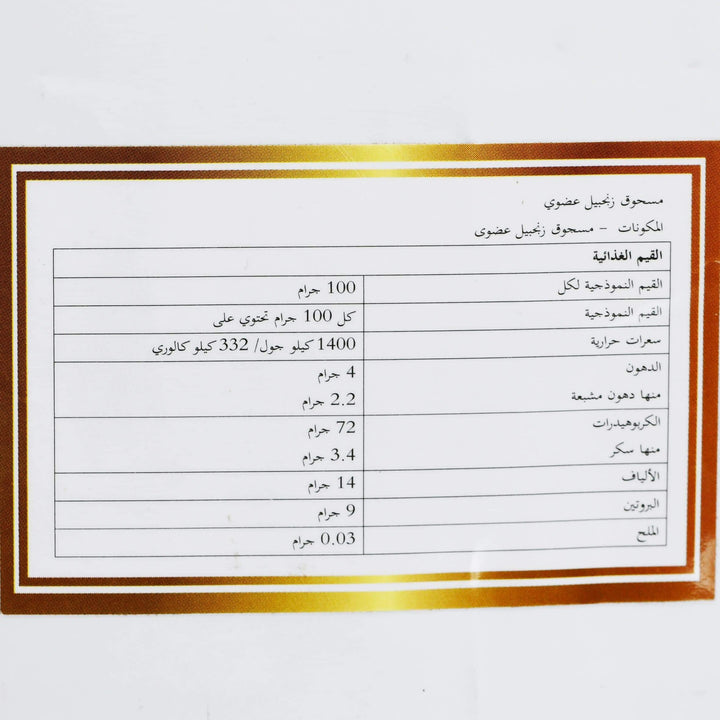 مسحوق زنجبيل عضوي
المكونات – مسحوق زنجبيل عضوى
القيم الغذائية
القيم النموذجية لكل 100 جرام
القيم النموذجية كل 100 جرام تحتوي على
سعرات حرارية 1400 كيلو جول/ 332 كيلو كالوري
الدهون 4 جرام
منها دهون مشبعة 2.2 جرام
الكربوهيدرات 72 جرام
منها سكر 3.4 جرام
الألياف 14 جرام
البروتين 9 جرام
الملح 0.03 جرام